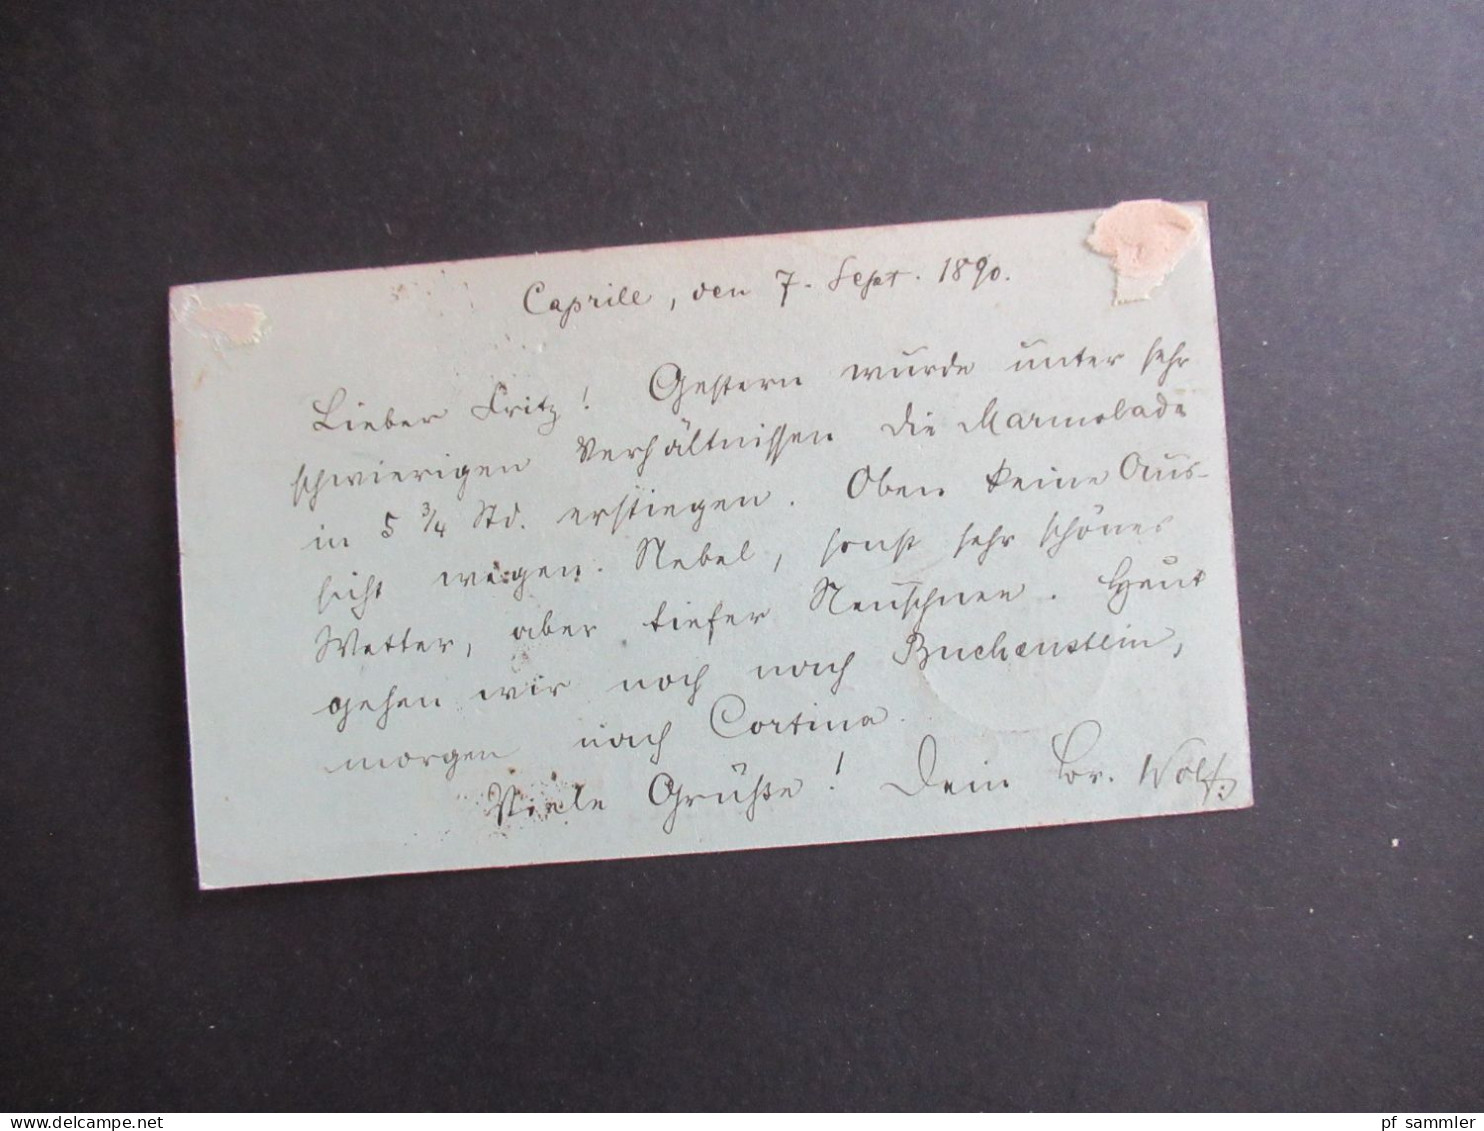 Caprile, den 7. Sept. 1890.
Lieber Fritz! Gestern wurde unter sehr
schwierigen Verhältnissen die Marmolada
in 5 3/4 Std. erstiegen. Oben keine Aus-
sicht wegen Nebel, sonst sehr schönes
Wetter, aber tiefer Neuschnee. Heut
gehen wir noch nach Buchenstein,
morgen nach Cortina.
Viele Grüße! Dein Br. Wolf.
www.delcampe.net
pf sammler